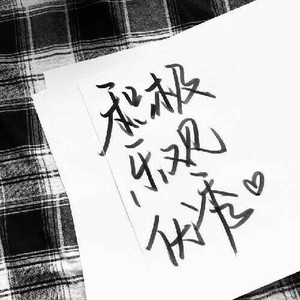 积极
乐观
优秀